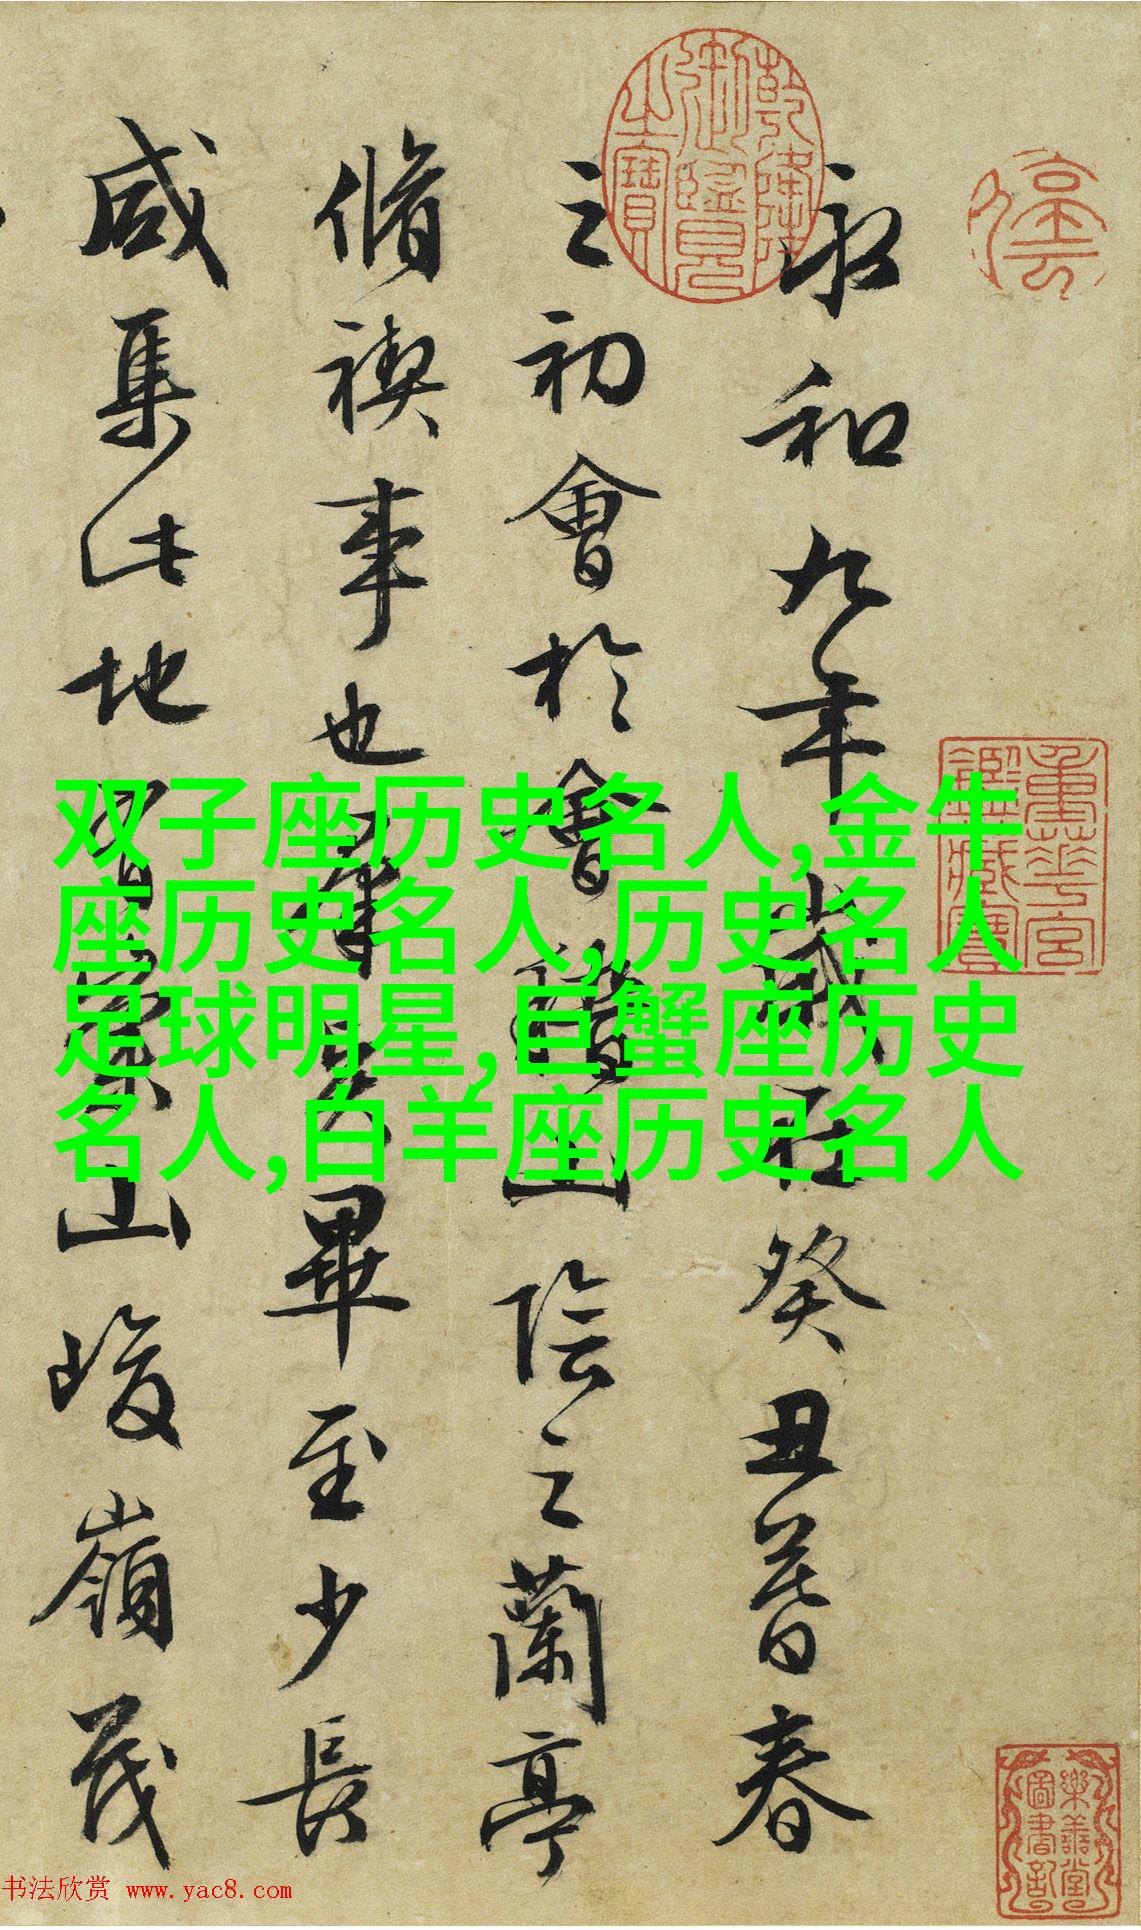 永和九年歲在癸丑暮春
之初會於會稽山陰之蘭亭
脩禊事也羣賢畢至少長
咸集此地有崇山峻嶺茂
双子座历史名人,金牛
座历史名人,历史名人
足球明星,巨蟹座历史
名人,白羊座历史名人
乾隆御鑑之寶
樂善堂圖書記
书法欣赏 www.yac8.com